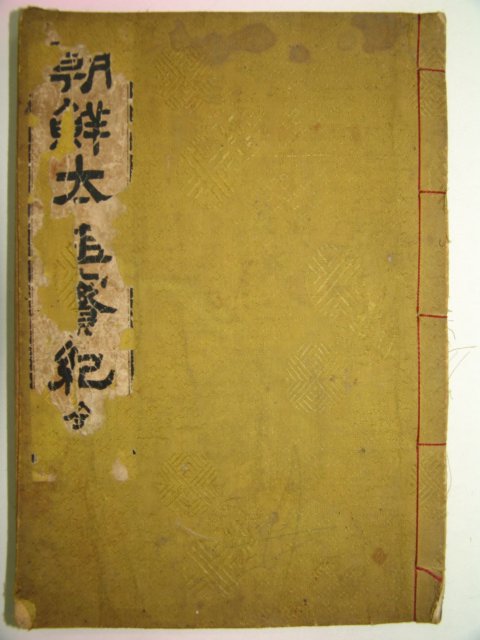 朝鮮太紀
全